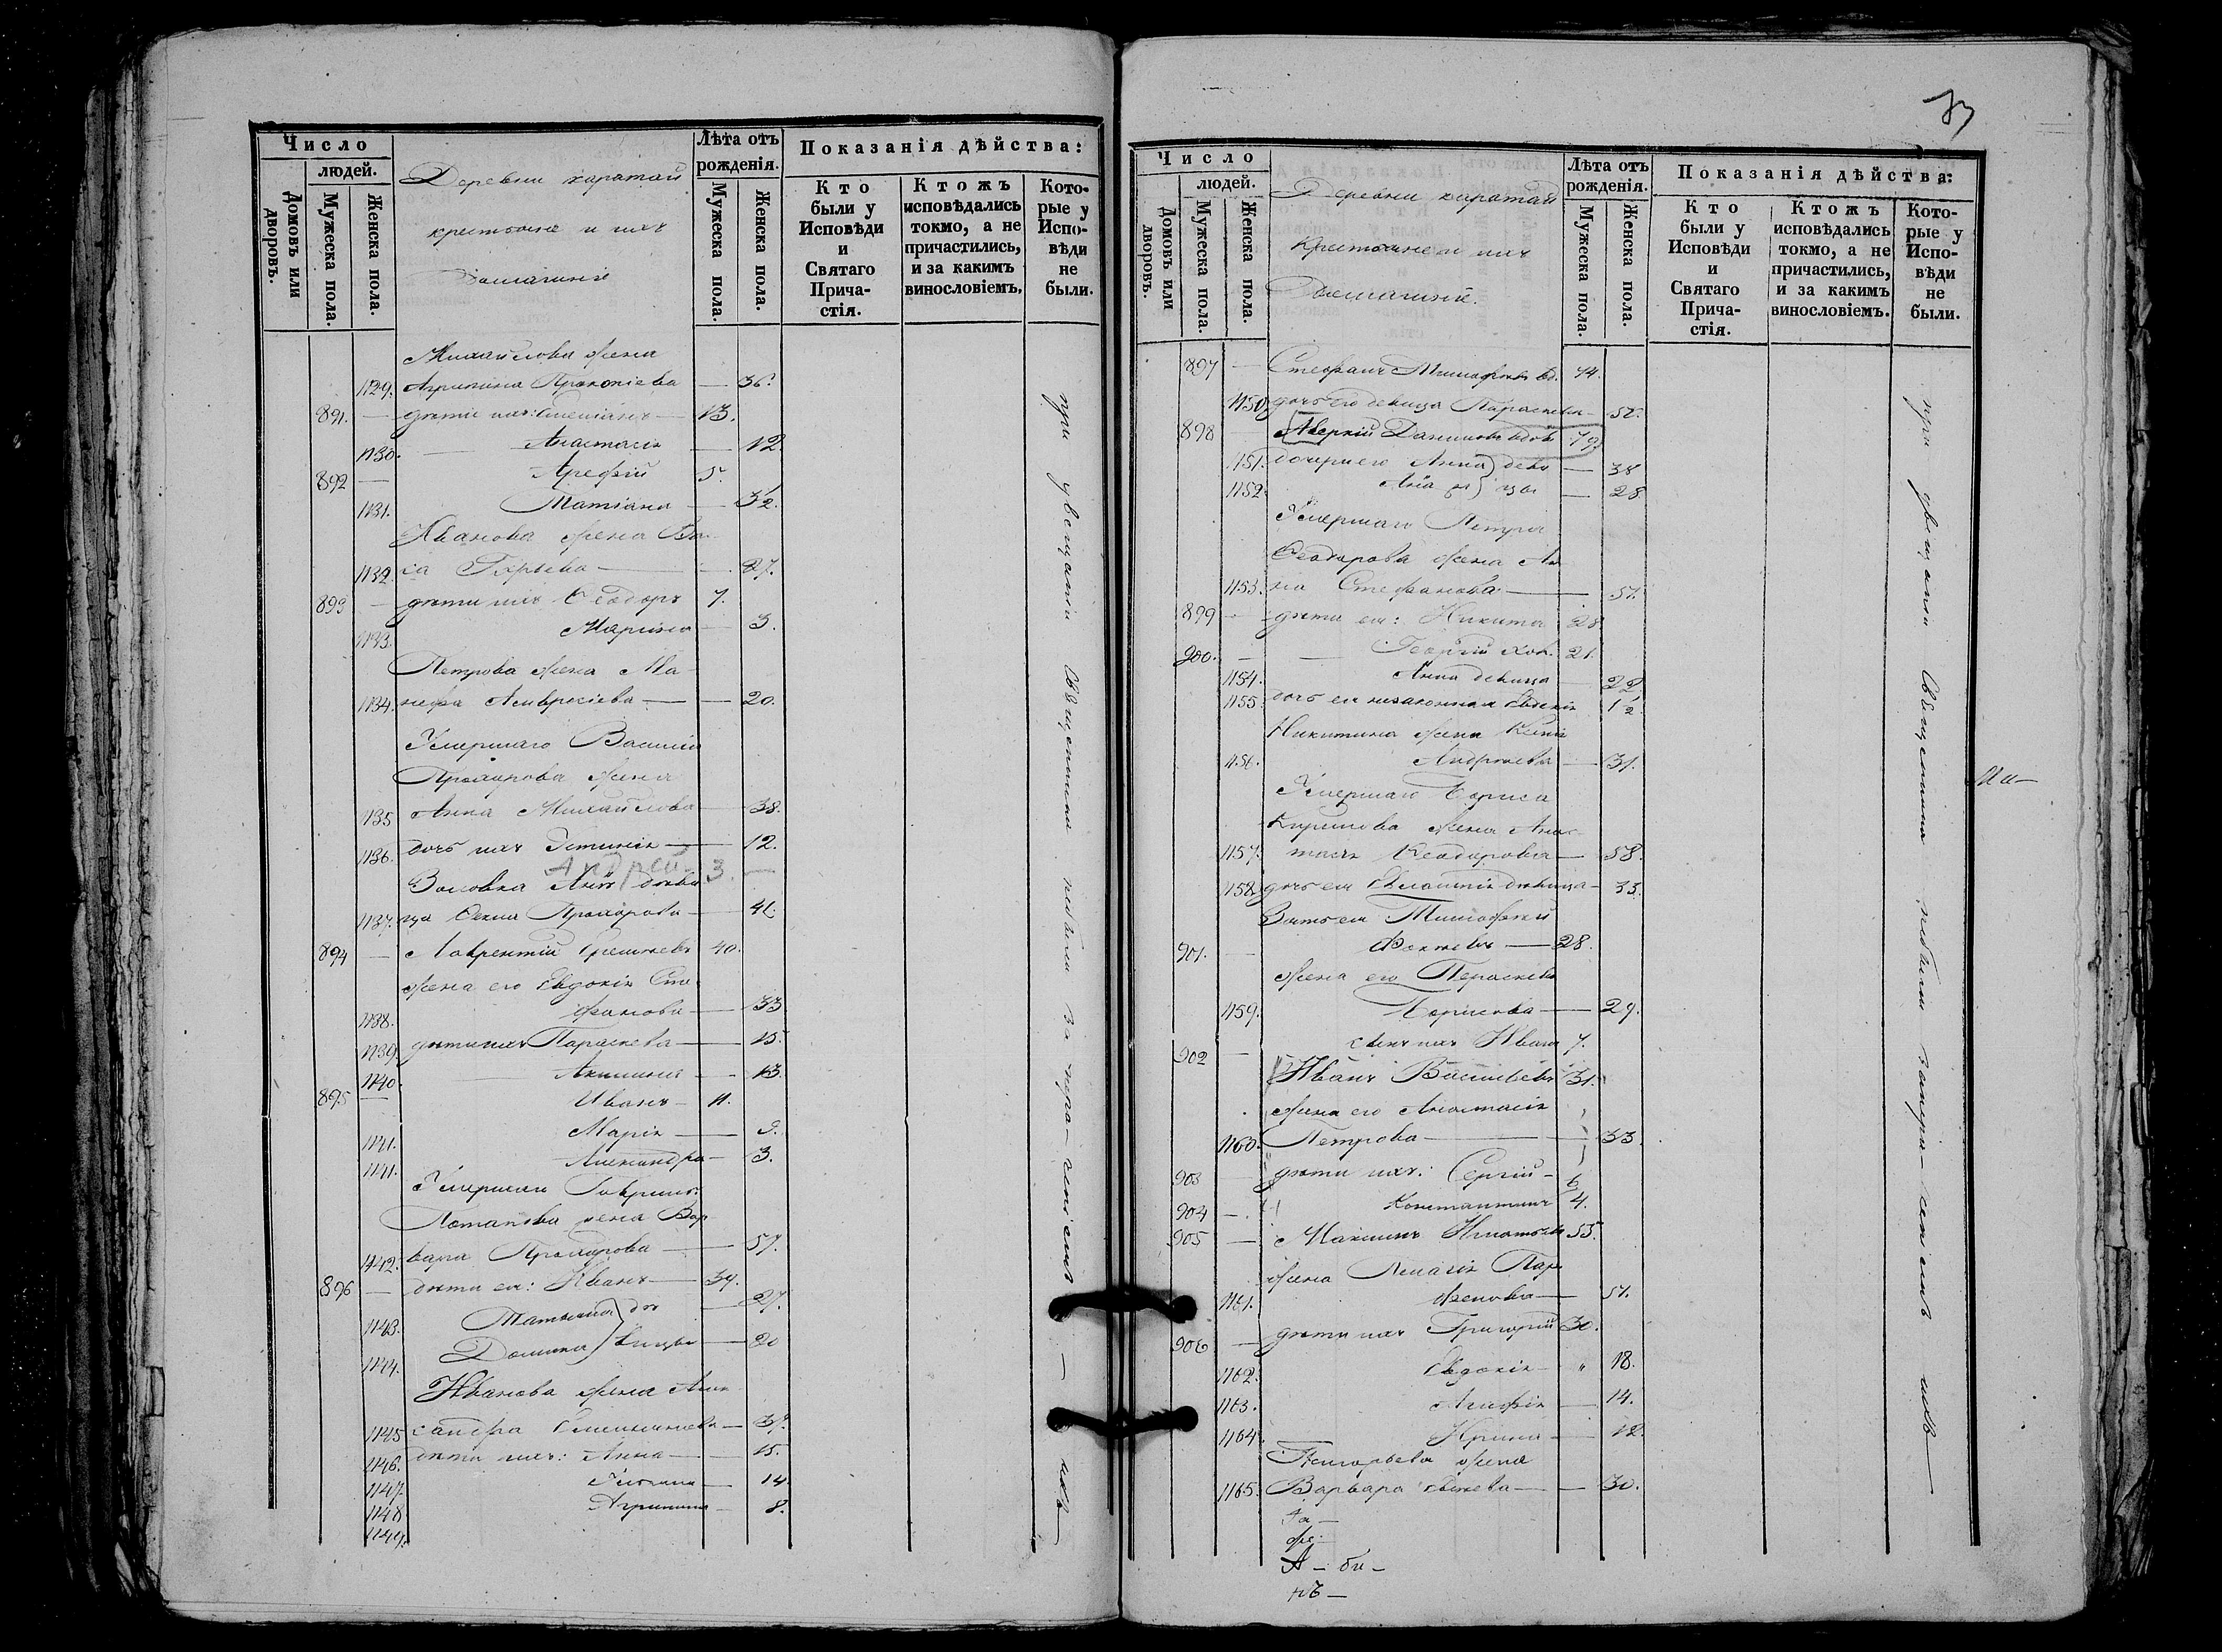 Число
людей.
Домовъ или дворовъ.
Мужеска пола.
Женска пола.
Деревни каратай
крестьяне и ихъ
домашніе
Лѣта отъ
рожденія.
Мужеска пола.
Женска пола.
Показанія дѣйства:
Кто были у Исповѣди и Святаго Прича-стія.
Ктожъ исповѣдались токмо, а не причастились, и за какимъ винословіемъ.
Кото-рые у Испо-вѣди не были.
Михайлова жена
1129. Агрипина Прокопіева — 36.
891. — дѣти ихъ: 13.
1130. — Анастасія — 12
892 — Арефій 5.
1131. Татіана — 3 1/2.
Иванова жена Ва
1132. са Гурьева — 27.
893 — дѣти ихъ Ѳеодоръ 7.
1133. Марина — 3.
Петрова жена Ма-
1134. Амвросіева — 20.
Умершаго Василія
Прохорова жена
1135 Анна Михайлова — 38.
1136. дочь ихъ Устинія — 12.
Андрей 3. —
Золовка дѣви
1137. ца Прохорова — 41.
894 — Лаврентій 40.
жена его Евдокія Сте
1138. фанова — 33
1139. дѣти ихъ Параскева — 15.
1140. Акилина — 13.
895 — Иванъ — 11.
1141. Марія — 9.
1141. Александра — 3.
Умершаго Гаврила
Потапова жена Вар
1142. вара Прохорова — 57.
896 — дѣти ея: Иванъ — 34.
1143. Татьяна дѣ — 27.
1144. Домна вицы — 20
Иванова жена Алек
1145 сандра — 37.
1146. дѣти ихъ: Анна — 15.
1147. Устинія — 14
1148 Агрипина — 8.
1149.
при увещаніи Священника небыли за нера— — ніемъ — ихъ—
73
Число
людей.
Домовъ или дворовъ.
Мужеска пола.
Женска пола.
Деревни каратай
Крестьяне и ихъ
Домашніе.
Лѣта отъ
рожденія.
Мужеска пола.
Женска пола.
Показанія дѣйства:
Кто были у Исповѣди и Святаго Прича-стія.
Ктожъ исповѣдались токмо, а не причастились, и за какимъ винословіемъ.
Кото-рые у Испо-вѣди не были.
897 — Стефанъ Тимофеевъ вд. 74.
1150 дочь его девица Параскева — 52.
898 Аверкій Даниловъ вдов 79.
1151. дочери его Анна дѣви — 38
1152. цы — 28
Умершаго Петра
Ѳеодорова жена Ан
1153. на Стефанова — 57.
899 — дѣти ея: Никита 28
900. — Георгій хол. 21.
1154. Анна девица — 22
1155 дочь ея незаконная Евдокія 1 1/2
Никитина жена
1156. Андреева — 31.
Умершаго Бориса
Кирилова жена Анас-
1157. тасія Ѳеодорова — 58.
1158 дочь ея девица — 35.
Зять ея Тимофей
901. — Фокѣевъ — 28.
жена его Параскева
1159. Борисова — 29.
902 — сынъ ихъ Иванъ 7.
Иванъ Васильевъ 31.
жена его Анастасія
1160. Петрова — 33.
903 дѣти ихъ: Сергій — 6
904 — Константинъ 4.
905 — Максимъ Игнатьевъ 55.
жена Пелагія Пар
1161. фенова — 51.
906 — дѣти ихъ Григорій 30.
1162. Евдокія — 18.
1163. Агафія — 14.
1164. Ирина — 12.
Григорьева жена
1165. Варвара — 30.
при увещаніи Священника небыли — ніемъ ихъ—